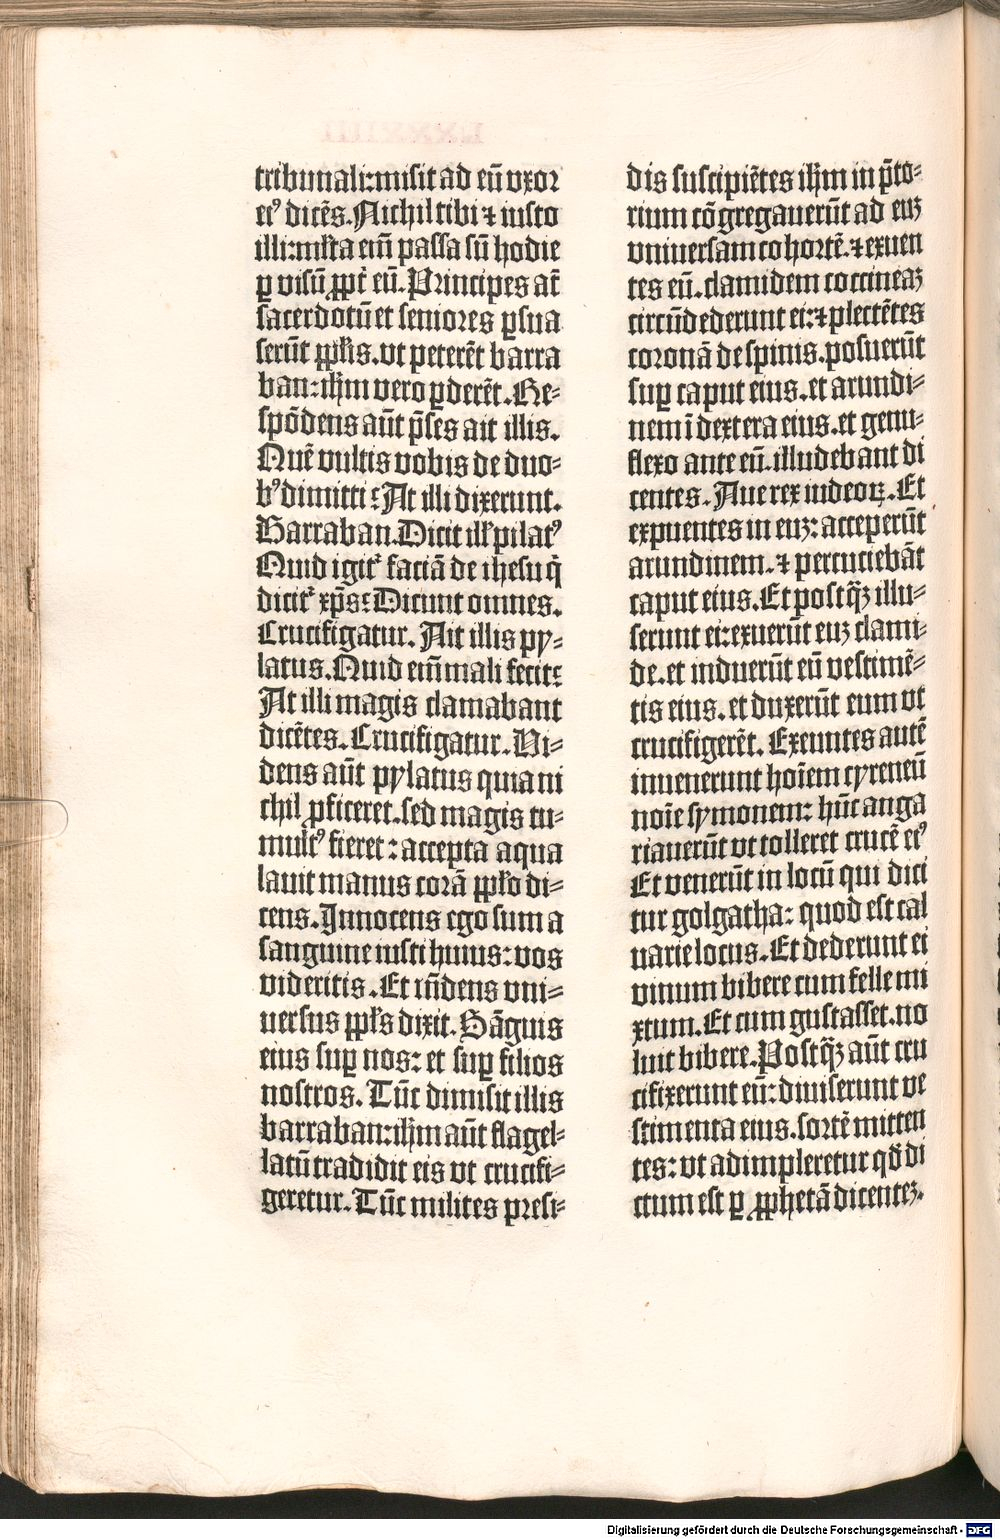 tribunali:misit ad eū vxor
ei⁹ dicēs. Nichil tibi ⁊ iusto
illi:ml̓ta eīm passa sū hodie
ꝑ visū ꝓpt̓ eū. Principes at̄
sacerdotū et seniores ꝑsua
serūt ꝓp̓lis. vt peterēt barra
ban:ih̄m vero ꝑderēt. Re-
spōdens aūt p̄ses ait illis.
Quē vultis vobis de duo-
b⁹ dimitti? At illi dixerunt.
Barraban. Dicit ill̓ pilat⁹
Quid igit᷑ faciā de ihesu q̄
dicit᷑ xp̄s? Dicunt omnes.
Crucifigatur. Ait illis py-
latus. Quid eīm mali fecit?
At illi magis clamabant
dicētes. Crucifigatur. Vi-
dens aūt pylatus quia ni
chil ꝓficeret. sed magis tu-
mult⁹ fieret: accepta aqua
lauit manus corā ꝓp̓lo di-
cens. Innocens ego sum a
sanguine iusti huius: vos
videritis. Et rn̄dens vni-
uersus ꝓp̓ls dixit. Sāguis
eius suꝑ nos: et suꝑ filios
nostros. Tūc dimisit illis
barraban:ih̄m aūt flagel-
latū tradidit eis vt crucifi-
geretur. Tūc milites presi-
dis suscipiētes ih̄m in p̄to-
rium cōgregauerūt ad euꝫ
vniuersam cohortē. ⁊ exuen
tes eū. clamidem coccineaꝫ
circūdederunt ei: ⁊ plectētes
coronā de spinis. posuerūt
suꝑ caput eius. et arundi-
nem ī dextera eius. et genu-
flexo ante eū. illudebant di
centes. Aue rex iudeoꝝ. Et
expuentes in euꝫ: acceperūt
arundinem. ⁊ percutiebāt
caput eius. Et postq̄ꝫ illu-
serunt ei: exuerūt euꝫ clami-
de. et induerūt eū vestimē-
tis eius. et duxerūt eum vt
crucifigerēt. Exeuntes autē
inuenerunt hoīem cyreneū
noīe symonem: hūc anga
riauerūt vt tolleret crucē ei⁹
Et venerūt in locū qui dici
tur golgatha: quod est cal
uarie locus. Et dederunt ei
vinum bibere cum felle mi
xtum. Et cum gustasset. no
luit bibere. Postq̄ꝫ aūt cru
cifixerunt eū: diuiserunt ve
stimenta eius. sortē mitten
tes: vt adimpleretur qđ di
ctum est ꝑ ꝓphetā dicenteꝫ.
Digitalisierung gefördert durch die Deutsche Forschungsgemeinschaft - DFG